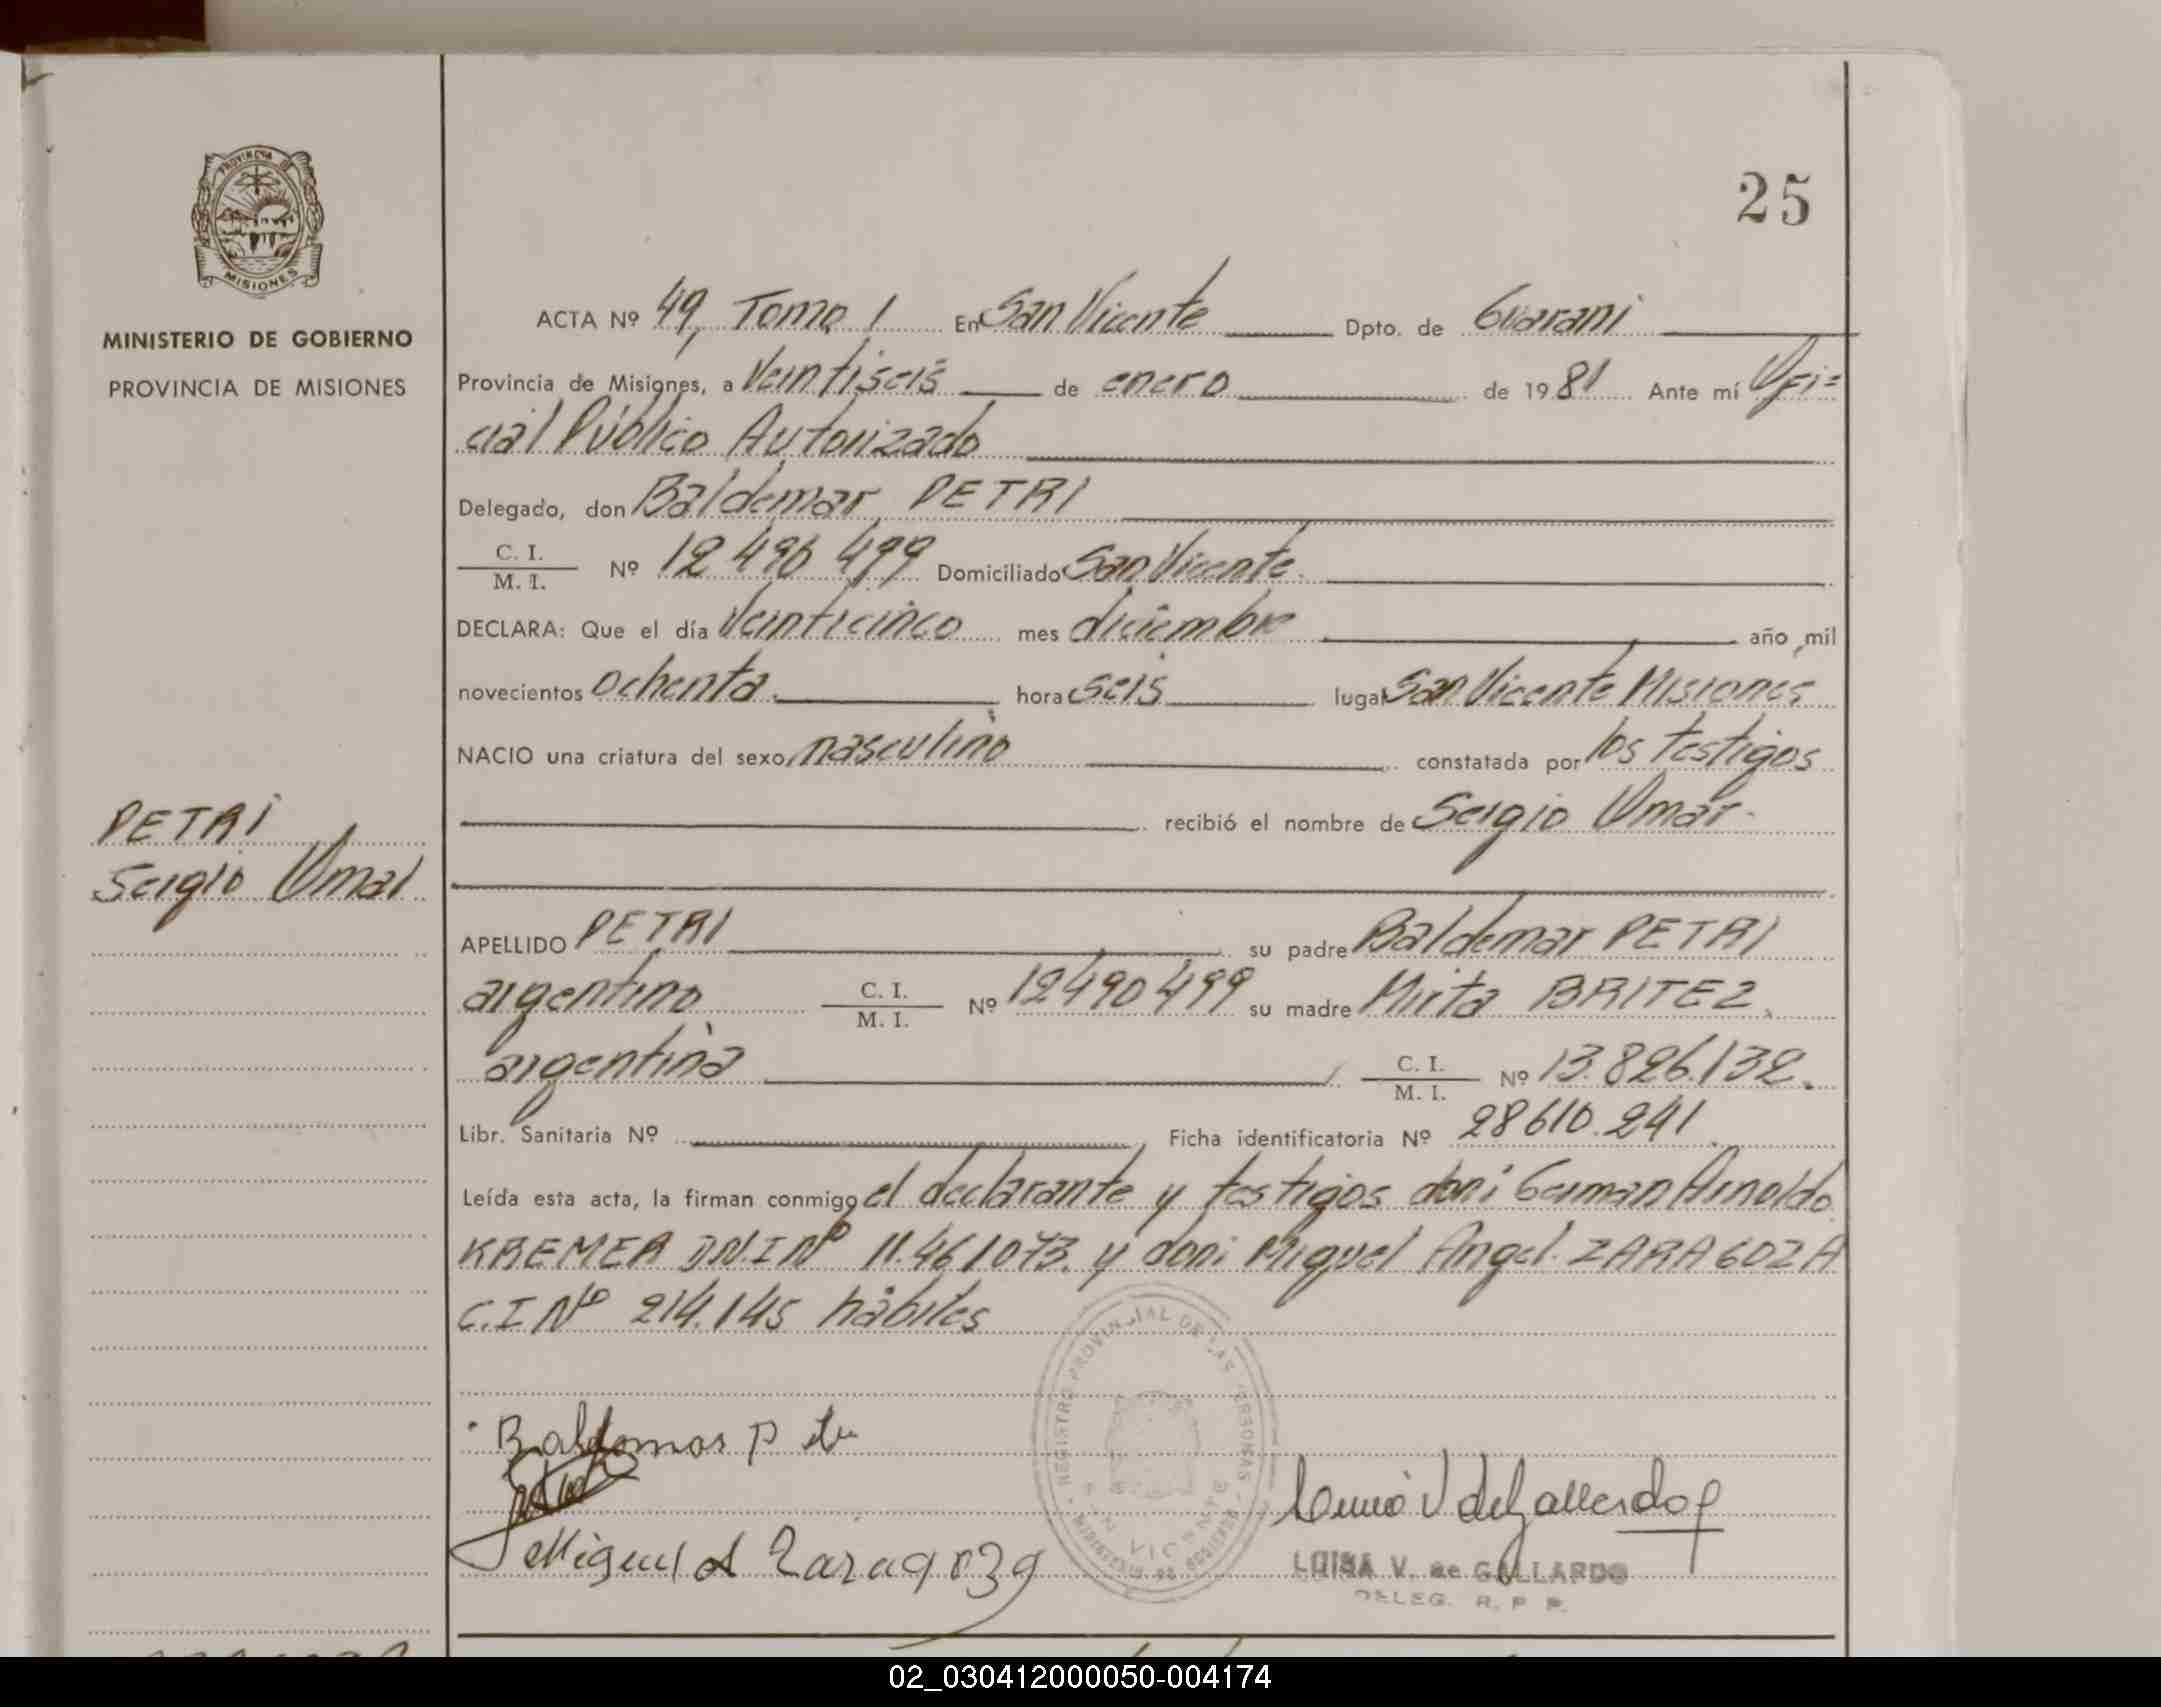 PROVINCIA DE
MISIONES
MINISTERIO DE GOBIERNO
PROVINCIA DE MISIONES
25
ACTA Nº 49, Tomo 1 En San Vicente Dpto. de Guarani
Provincia de Misiones, a Veintiseis de enero de 1981 Ante mí Ofi=
cial Público Autorizado
Delegado, don Baldemar PETRI
C. I. / M. I. Nº 12 490 499 Domiciliado San Vicente.
DECLARA: Que el día Veinticinco mes diciembre año mil
novecientos ochenta. hora seis lugar San Vicente Misiones
NACIO una criatura del sexo masculino constatada por los testigos
recibió el nombre de Sergio Omar.
PETRI
Sergio Omar
APELLIDO PETRI su padre Baldemar PETRI
argentino C. I. / M. I. Nº 12490499 su madre Mirta BRITEZ,
argentina C. I. / M. I. Nº 13.826.132.
Libr. Sanitaria Nº Ficha identificatoria Nº 28610.241.
Leída esta acta, la firman conmigo el declarante y testigos don: German Arnoldo
KREMER D.N.I Nº 11.461073. y don: Miguel Angel. ZARAGOZA
C.I Nº 214.145 hábiles
REGISTRO PROVINCIAL DE LAS PERSONAS
SAN VICENTE
MINISTERIO DE GOBIERNO
Baldemar P
Miguel A Zaragoza
V de Gallardo
LUISA V. de GALLARDO
DELEG. R. P. P.
02_030412000050-004174